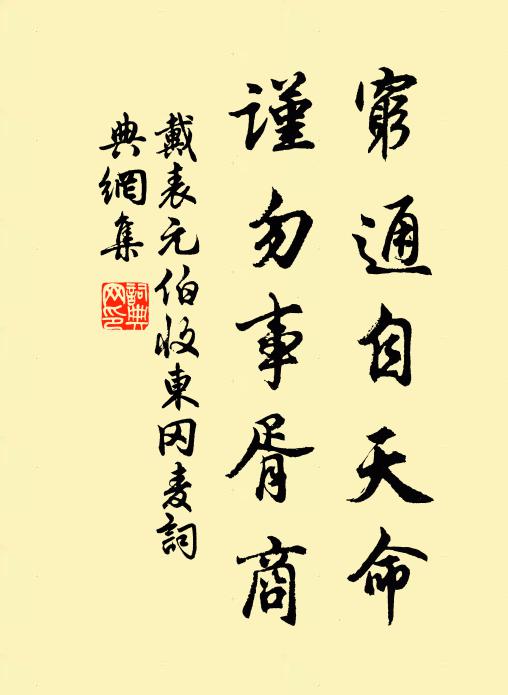 窮通自天命
謹勿事胥商
戴表元伯收東岡麦詞
典網集
詞典网印